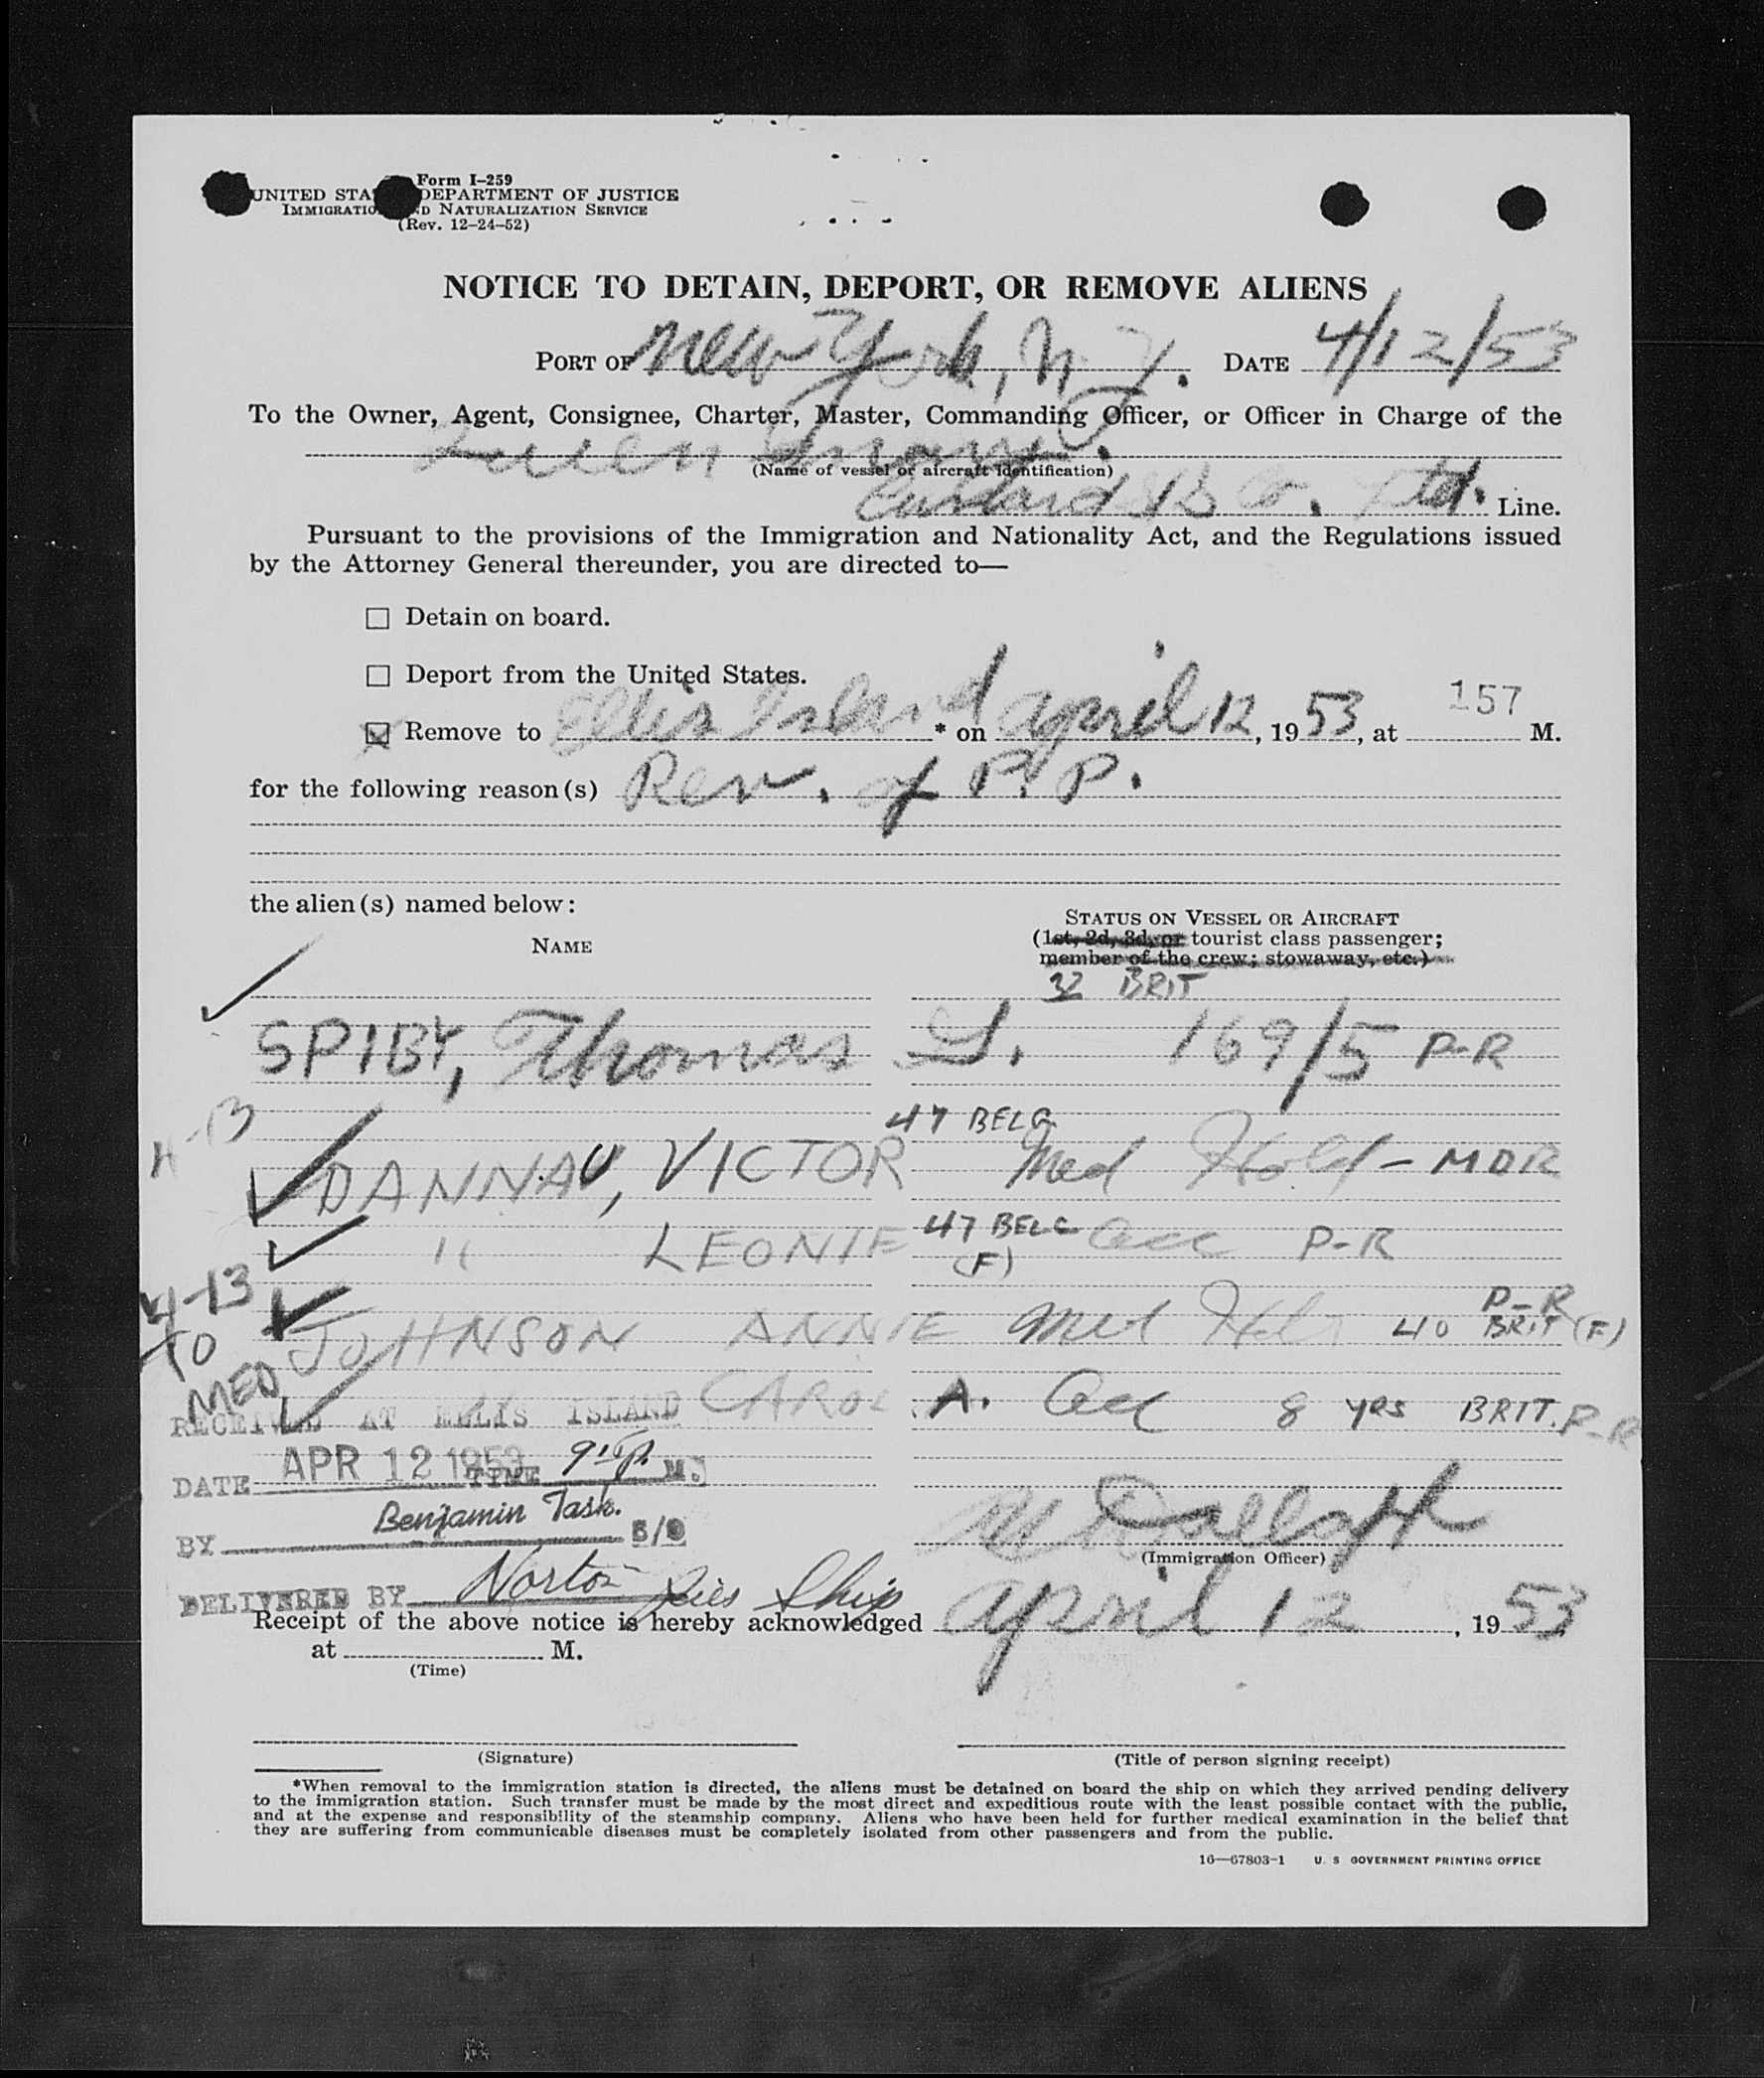 Form I–259
UNITED STA DEPARTMENT OF JUSTICE
IMMIGRATIO D NATURALIZATION SERVICE
(Rev. 12–24–52)
NOTICE TO DETAIN, DEPORT, OR REMOVE ALIENS
PORT OF New York, N.Y. DATE 4/12/53
To the Owner, Agent, Consignee, Charter, Master, Commanding Officer, or Officer in Charge of the
Queen Mary
(Name of vessel or aircraft identification)
Cunard Co. Ltd. Line.
Pursuant to the provisions of the Immigration and Nationality Act, and the Regulations issued
by the Attorney General thereunder, you are directed to—
☐ Detain on board.
☐ Deport from the United States.
☒ Remove to Ellis Island * on April 12, 1953, at 157 M.
for the following reason(s) Rev. of P.P.
the alien(s) named below:
NAME
STATUS ON VESSEL OR AIRCRAFT
(1st, 2d, 3d, or tourist class passenger;
member of the crew; stowaway, etc.)
32 BRIT
SPIBY, Thomas 169/5 P-R
4-13
47 BELG
DANNAU, VICTOR Med Hold - MDR
" LEONIE 47 BELG (F) Acc P-R
4-13
TO
MED
P-R
JOHNSON ANNIE Med Hold 40 BRIT (F)
" CAROL A. Acc 8 yrs BRIT. P-R
RECEIVED AT ELLIS ISLAND
DATE APR 12 1953 TIME M.
BY Benjamin Task. S/O
(Immigration Officer)
DELIVERED BY Norton Ship
Receipt of the above notice is hereby acknowledged April 12, 1953,
at M.
(Time)
(Signature)
(Title of person signing receipt)
*When removal to the immigration station is directed, the aliens must be detained on board the ship on which they arrived pending delivery
to the immigration station. Such transfer must be made by the most direct and expeditious route with the least possible contact with the public,
and at the expense and responsibility of the steamship company. Aliens who have been held for further medical examination in the belief that
they are suffering from communicable diseases must be completely isolated from other passengers and from the public.
16—67803-1 U. S. GOVERNMENT PRINTING OFFICE